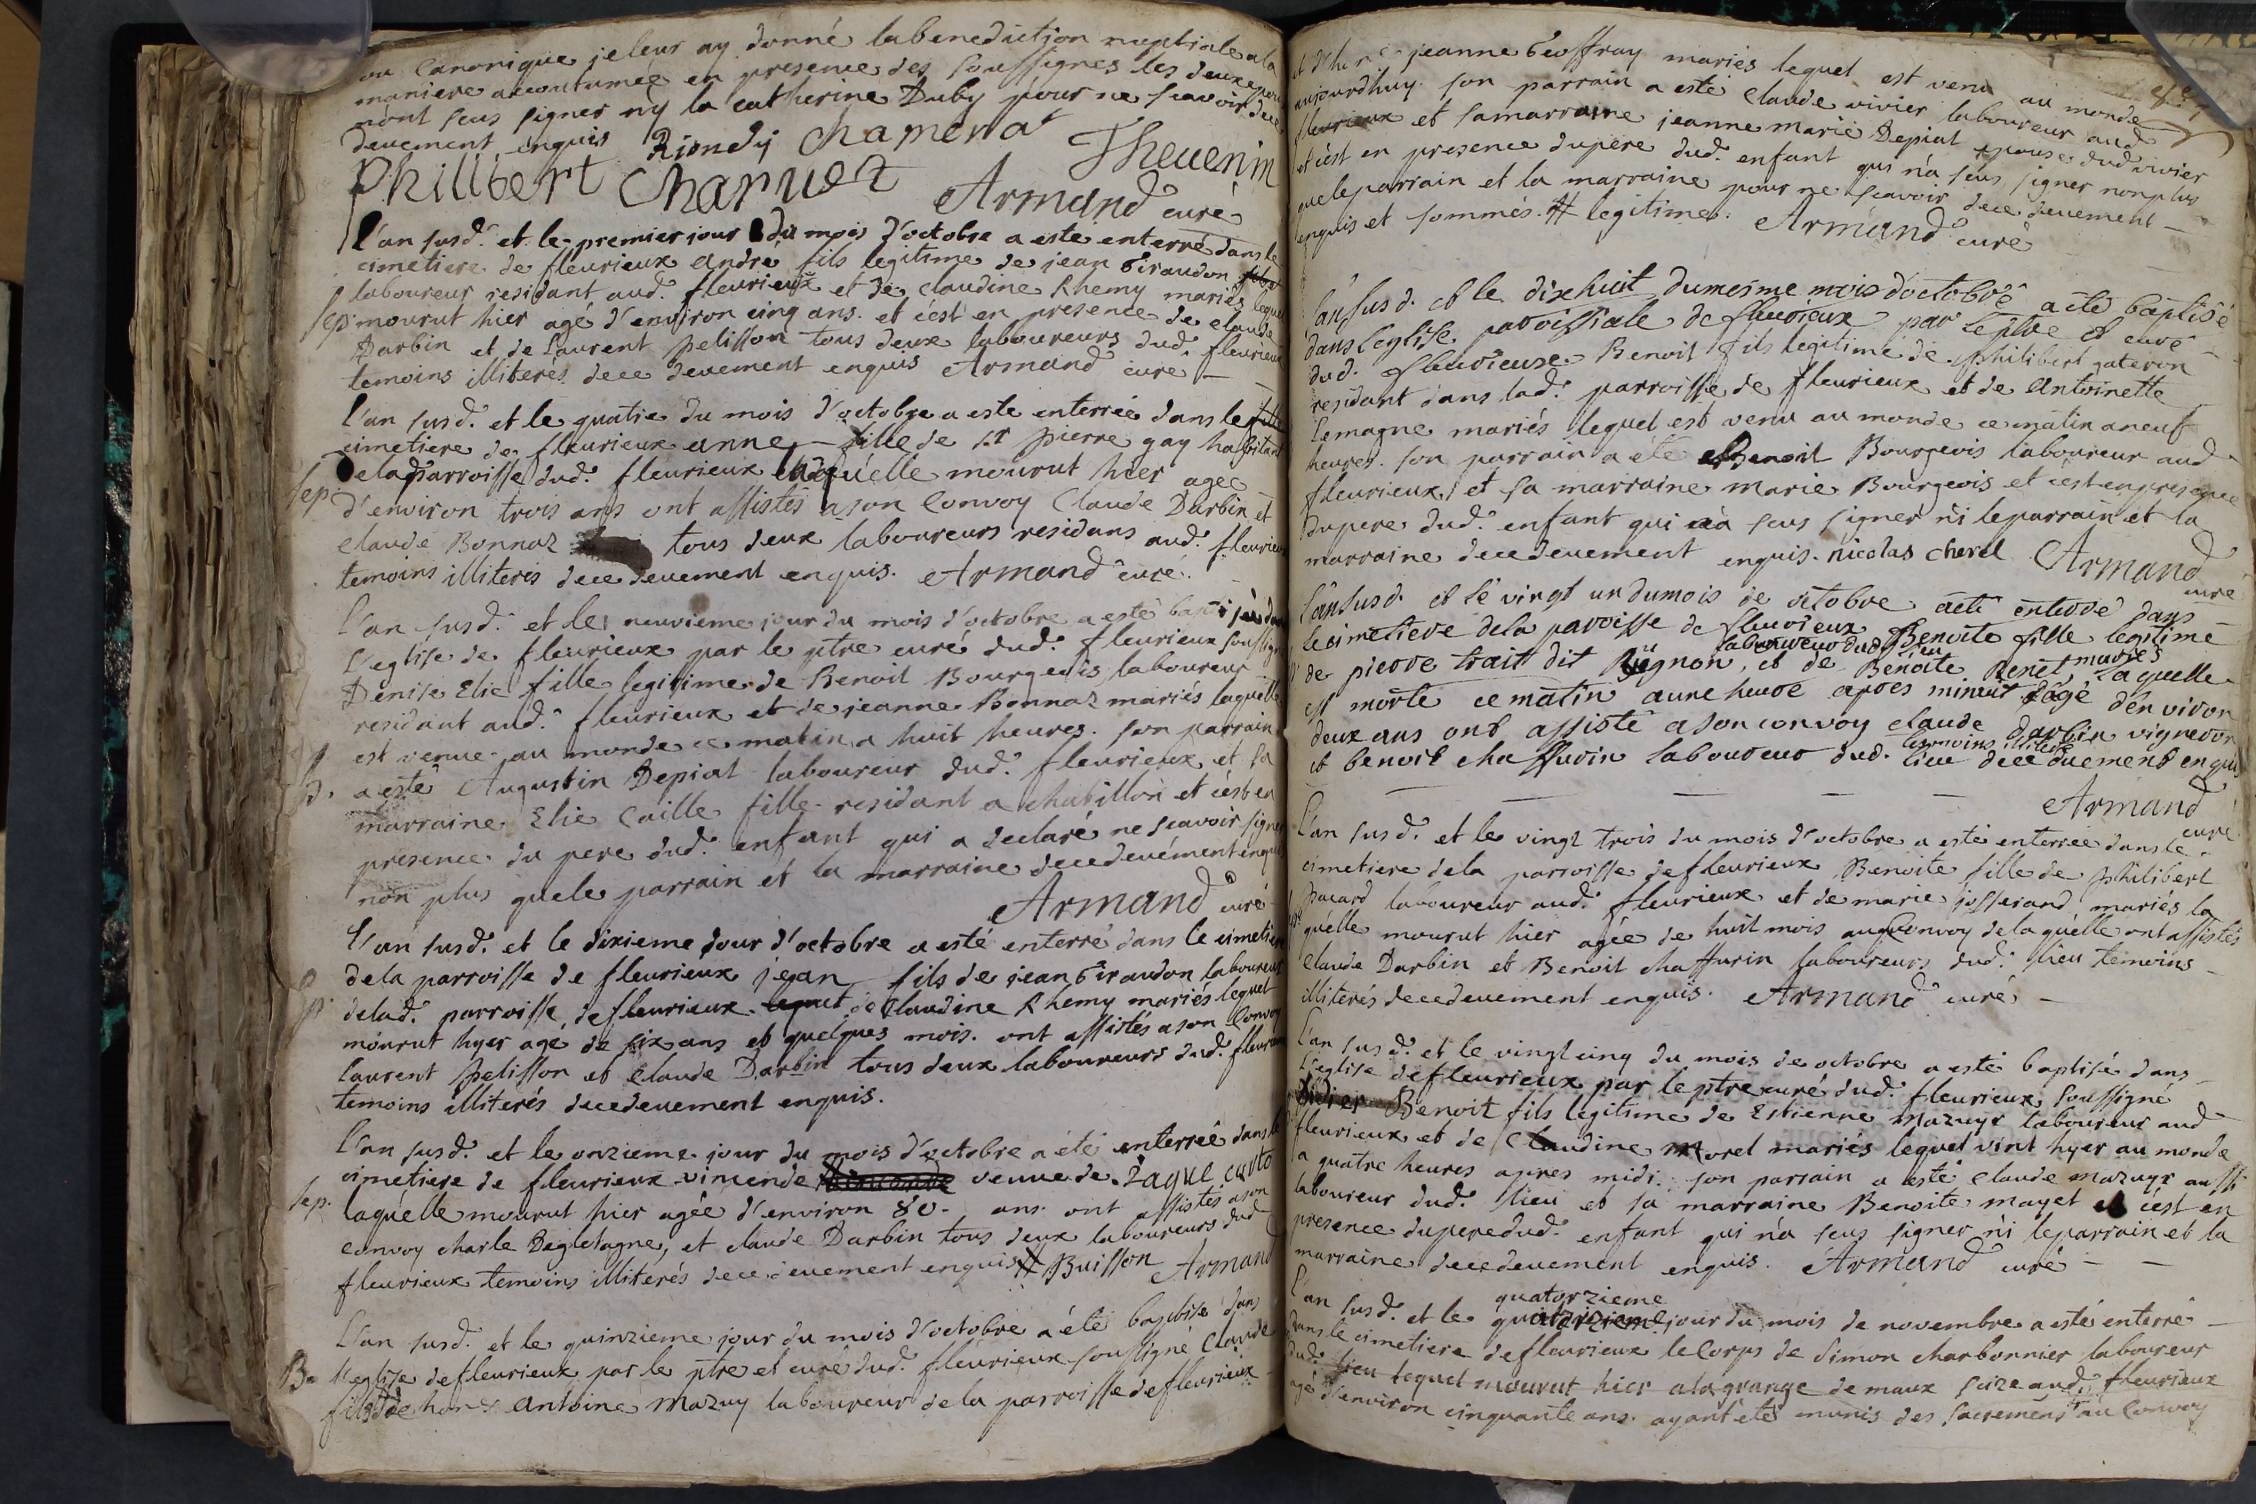 ou Canonique je leur ay donné la benediction nuptiale a la
maniere accoutumée en presence des soussignes les deux epoux
n'ont sceus signer n'y la catherine Duby pour ne scavoir dece
deuement enquis Riondy Chamerat Theuenin
Philibert Charuet Armand curé
L'an susd. et le premier jour du mois d'octobre a esté enterré dans le
cimetiere de fleurieux andré fils legitime de jean Giraudon
laboureur residant aud. fleurieux et de claudine Rhemy mariés lequel
sep. mourut hier agé d'environ cinq ans. et c'est en presence de claude
Darbin et de Laurent pelisson tous deux laboureurs dud. fleurieux
temoins illiteres dece deuement enquis Armand curé
L'an susd. et le quatre du mois d'octobre a esté enterrée dans le
cimetiere de fleurieux anne fille de sr pierre gay habitant
de la parroisse dud. fleurieux laquelle mourut hier agée
sep. d'environ trois ans ont assistés a son Convoy Claude Darbin et
claude Bonnaz tous deux laboureurs residans aud. fleurieux
temoins illiterés dece deuement enquis. Armand curé.
L'an susd. et le neuvieme jour du mois d'octobre a esté baptisée dans
L'eglise de fleurieux par le ptre curé dud. fleurieux soussigné
Denise Elie fille legitime de Benoit Bourgeois laboureur
residant aud. fleurieux et de jeanne Bonnaz mariés laquelle
est venue au monde ce matin a huit heures. son parrain
B. a esté Augustin Depiat laboureur dud. fleurieux et sa
marraine Elie Caille fille residant a chatillon et c'est en
presence du pere dud. enfant qui a declaré ne scavoir signer
non plus que le parrain et la marraine dece deuément enquis
Armand curé
L'an susd. et le dixieme jour d'octobre a esté enterré dans le cimetiere
de la parroisse de fleurieux jean fils de jean Giraudon laboureur
delad. parroisse de fleurieux lequel de Claudine Rhemy mariés lequel
mourut hyer agé de six ans et quelques mois. ont assistés a son Convoy
Laurent pelisson et Claude Darbin tous deux laboureurs dud. fleurieux
temoins illiterés dece deuement enquis.
L'an susd. et le onzieme jour du mois d'octobre a été enterrée dans le
cimetiere de fleurieux vincende veuue de
sep. laquélle mourut hier agée d'environ 80. ans. ont assistés a son
convoy charle Degletagne, et claude Darbin tous deux laboureurs dud
fleurieux temoins illiterés dece deuement enquis # Buisson Armand
L'an susd. et le quinzieme jour du mois d'octobre a été baptisé dans
B. L'eglise de fleurieux par le ptre et curé dud. fleurieux soussigné Claude
fils de antoine Mazuy laboureur de la parroisse de fleurieux
et d' jeanne Geoffray mariés lequel est venu au monde
aujourdhuy son parrain a esté Claude vivier laboureur aud
fleurieux et sa marraine jeanne marie Depiat epouse dud vivier
et c'est en presence du pere dud. enfant qui n'a sceus signer non plus
que le parrain et la marraine pour ne scavoir dece deuement
enquis et sommés. # legitime. Armand curé
L'an susd. et le dixhuit du mesme mois d'octobre a été baptisé
dans l'eglise paroissiale de fleurieux par le ptre et curé
dud. fleurieux Benoit fils legitime de philibert gateron
residant dans lad. parroisse de fleurieux et de antoinette
Lemagne mariés lequel est venu au monde ce matin a neuf
heures. son parrain a été Benoit Bourgeois laboureur aud
fleurieux et sa marraine Marie Bourgeois et c'est en presence
du pere dud. enfant qui n'a sceus signer n'i le parrain et la
marraine dece deuement enquis. nicolas cherel Armand
curé
L'an susd. et le vingt un du mois de octobre a été enterré dans
le cimetiere de la paroisse de fleurieux Benoite fille legitime
laboureur dud. lieu
de pierre trait dit Rignon, et de Benoite Renet, mariés laquelle
est morte ce matin a une heure apres minuit agé d'environ
deux ans ont assisté a son convoy claude darbin vigneron
temoins illiteré
et benoit chaffurin laboureur dud. lieu dece duement enquis
Armand
curé
L'an susd. et le vingt trois du mois d'octobre a esté enterrée dans le
cimetiere de la parroisse de fleurieux Benoite fille de philibert
pacard laboureur aud. fleurieux et de marie josserand mariés la
quélle mourut hier agée de huit mois au Convoy de la quélle ont assistés
Claude Darbin et Benoit chaffurin laboureurs dud. lieu temoins
illiterés dece deuement enquis. Armand curé
L'an susd. et le vingt cinq du mois de octobre a esté baptisé dans
L'eglise de fleurieux par le ptre curé dud. fleurieux soussigné
Didier Benoit fils legitime de Estienne Mazuyr laboureur aud
fleurieux et de Claudine Morel mariés lequel vint hyer au monde
a quatre heures apres midi. son parrain a esté Claude Mazuyr aussi
laboureur dud. lieu et sa marraine Benoite mayet et c'est en
presence du pere dud. enfant qui n'a sceus signer n'i le parrain et la
marraine dece deuement enquis. Armand curé
quatorzieme
L'an susd. et le quatorzieme jour du mois de novembre a esté enterré
dans le cimetiere de fleurieux le Corps de Simon charbonnier laboureur
dud. lieu lequel mourut hier a la grange de maux size aud. fleurieux
agé d'environ cinquante ans. ayant été munis des sacremens au Convoy